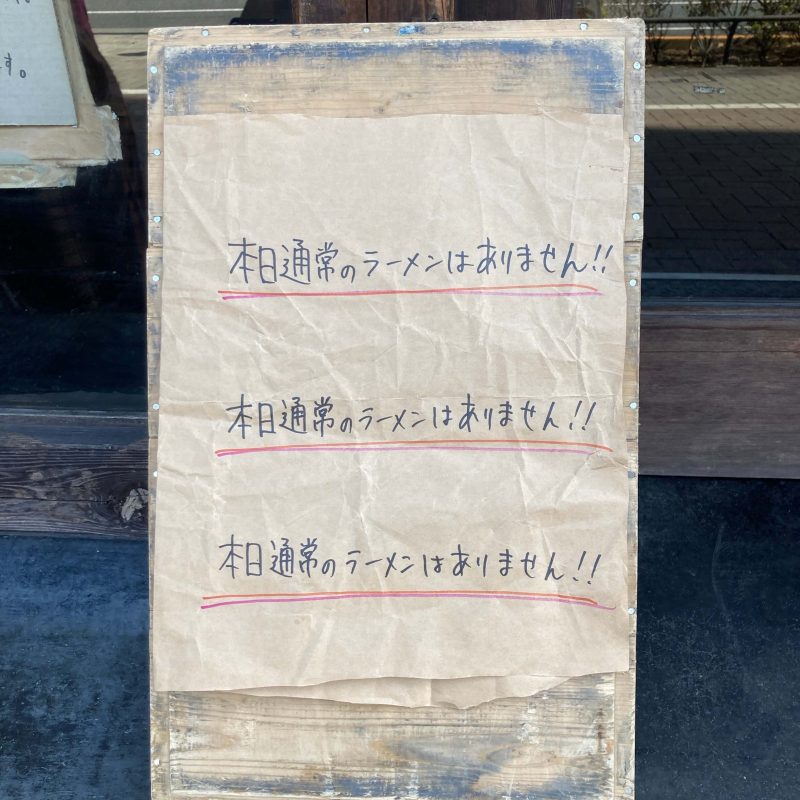 す。
本日通常のラーメンはありません!!
本日通常のラーメンはありません!!
本日通常のラーメンはありません!!